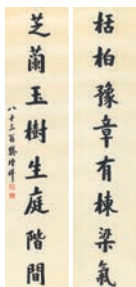 栝柏豫章有棟梁氣
芝蘭玉樹生庭階間